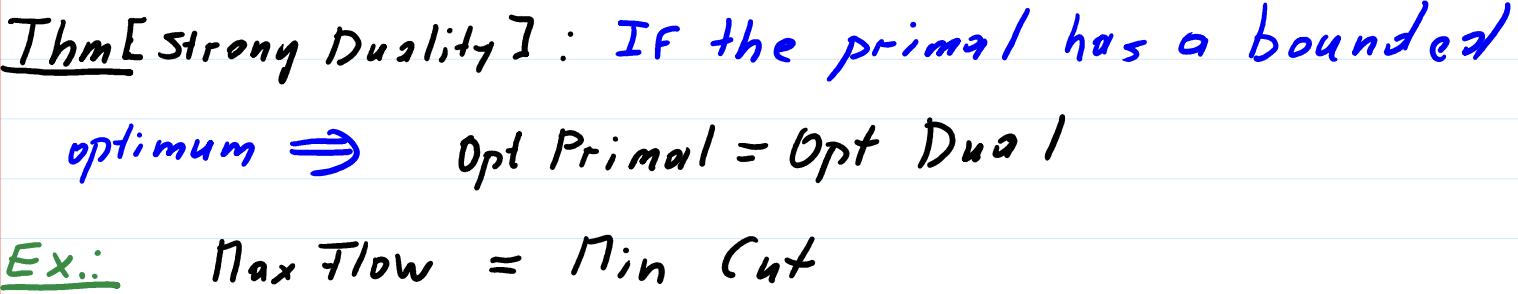 Thm[Strong Duality]: If the primal has a bounded
optimum ⇒ Opt Primal = Opt Dual
Ex.: Max Flow = Min Cut